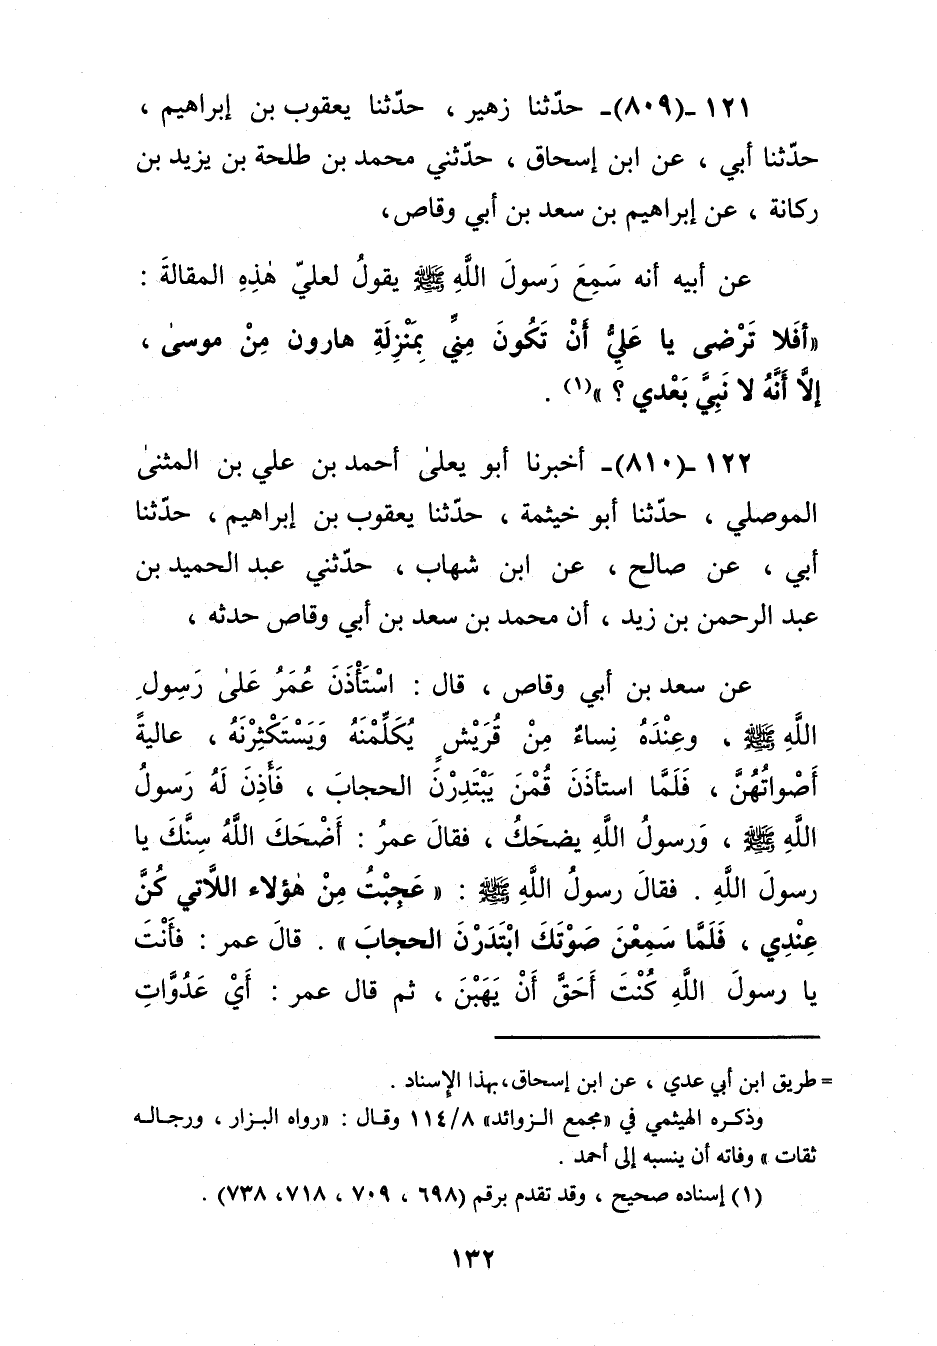 ١٢١ ـ(٨٠٩)ـ حدّثنا زهير ، حدّثنا يعقوب بن إبراهيم ،
حدّثنا أبي ، عن ابن إسحاق ، حدّثني محمد بن طلحة بن يزيد بن
ركانة ، عن إبراهيم بن سعد بن أبي وقاص،
عن أبيه أنه سَمِعَ رَسولَ اللَّهِ ﷺ يقولُ لعليّ هٰذِهِ المقالةَ :
«أَفَلا تَرْضى يا عَلِيُّ أَنْ تَكُونَ مِنِّي بِمَنْزِلَةِ هارون مِنْ موسىٰ ،
إلَّا أَنَّهُ لا نَبِيَّ بَعْدي ؟ »(١) .
١٢٢ ـ(٨١٠)ـ أخبرنا أبو يعلىٰ أحمد بن علي بن المثنىٰ
الموصلي ، حدّثنا أبو خيثمة ، حدّثنا يعقوب بن إبراهيم ، حدّثنا
أبي ، عن صالح ، عن ابن شهاب ، حدّثني عبد الحميد بن
عبد الرحمن بن زيد ، أن محمد بن سعد بن أبي وقاص حدثه ،
عن سعد بن أبي وقاص ، قال : اسْتَأْذَنَ عُمَرُ عَلىٰ رَسِولِ
اللَّهِ ﷺ ، وعِنْدَهُ نِساءٌ مِنْ قُرَيْشٍ يُكَلِّمْنَهُ وَيَسْتَكْثِرْنَهُ ، عاليةً
أَصْواتُهُنَّ ، فَلَمَّا استأذَنَ قُمْنَ يَبْتَدِرْنَ الحجابَ ، فَأَذِنَ لَهُ رَسولُ
اللَّهِ ﷺ ، وَرسولُ اللَّهِ يضحَكُ ، فقالَ عمرُ : أَضْحَكَ اللَّهُ سِنَّكَ يا
رسولَ اللَّهِ . فقالَ رسولُ اللَّهِ ﷺ : « عَجِبْتُ مِنْ هٰؤلاء اللَّاتي كُنَّ
عِنْدِي ، فَلَمَّا سَمِعْنَ صَوْتَكَ ابْتَدَرْنَ الحجابَ » . قالَ عمر : فأَنْتَ
يا رسولَ اللَّهِ كُنْتَ أَحَقَّ أَنْ يَهَبْنَ ، ثم قال عمر : أَيْ عَدُوَّاتِ
= طريق ابن أبي عدي ، عن ابن إسحاق، بهذا الإِسناد .
وذكـره الهيثمي في «مجمع الـزوائد» ١١٤/٨ وقـال : «رواه البـزار ، ورجـالـه
ثقات » وفاته أن ينسبه إلى أحمد .
(١) إسناده صحيح ، وقد تقدم برقم (٦٩٨ ، ٧٠٩ ، ٧١٨، ٧٣٨) .
١٣٢